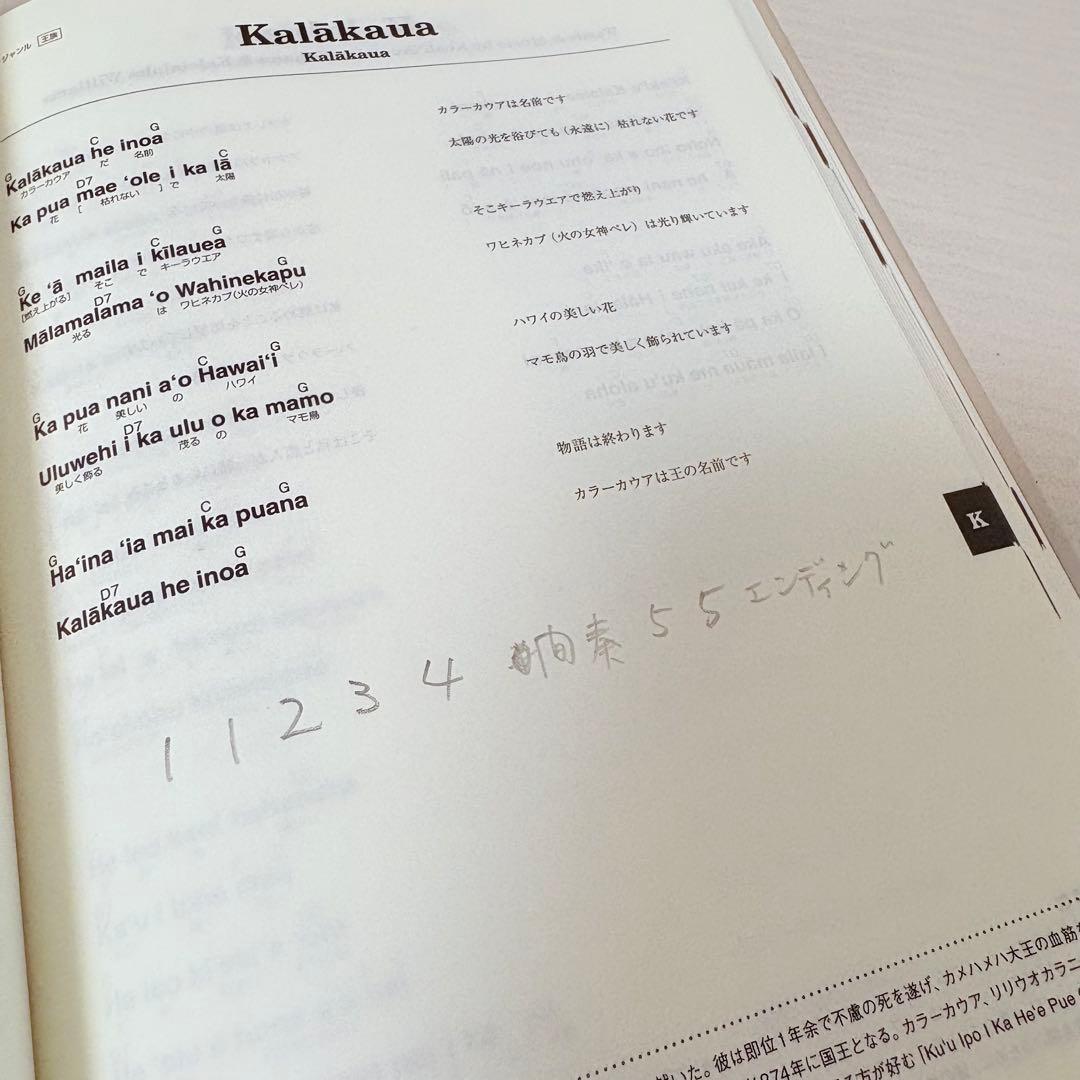 ジャンル 王族
Kalākaua
Kalākaua
G C G
Kalākaua he inoa
カラーカウア だ 名前
D7 C
Ka pua mae ‘ole i ka lā
花 [ 枯れない ] で 太陽
G C G
Ke ‘ā maila i kīlauea
[燃え上がる] そこ で キーラウエア
D7 G
Mālamalama ‘o Wahinekapu
光る は ワヒネカプ(火の女神ペレ)
G C G
Ka pua nani a‘o Hawai‘i
花 美しい の ハワイ
D7 G
Uluwehi i ka ulu o ka mamo
美しく飾る 茂る の マモ鳥
G C G
Ha‘ina ‘ia mai ka puana
D7 G
Kalākaua he inoa
カラーカウアは名前です
太陽の光を浴びても（永遠に）枯れない花です
そこキーラウエアで燃え上がり
ワヒネカプ（火の女神ペレ）は光り輝いています
ハワイの美しい花
マモ鳥の羽で美しく飾られています
物語は終わります
カラーカウアは王の名前です
K
1 1 2 3 4 間奏 5 5 エンディング
いた。彼は即位1年余で不慮の死を遂げ、カメハメハ大王の血筋
874年に国王となる。カラーカウア、リリウオカラニ
方が好む「Ku‘u Ipo I Ka He‘e Pue